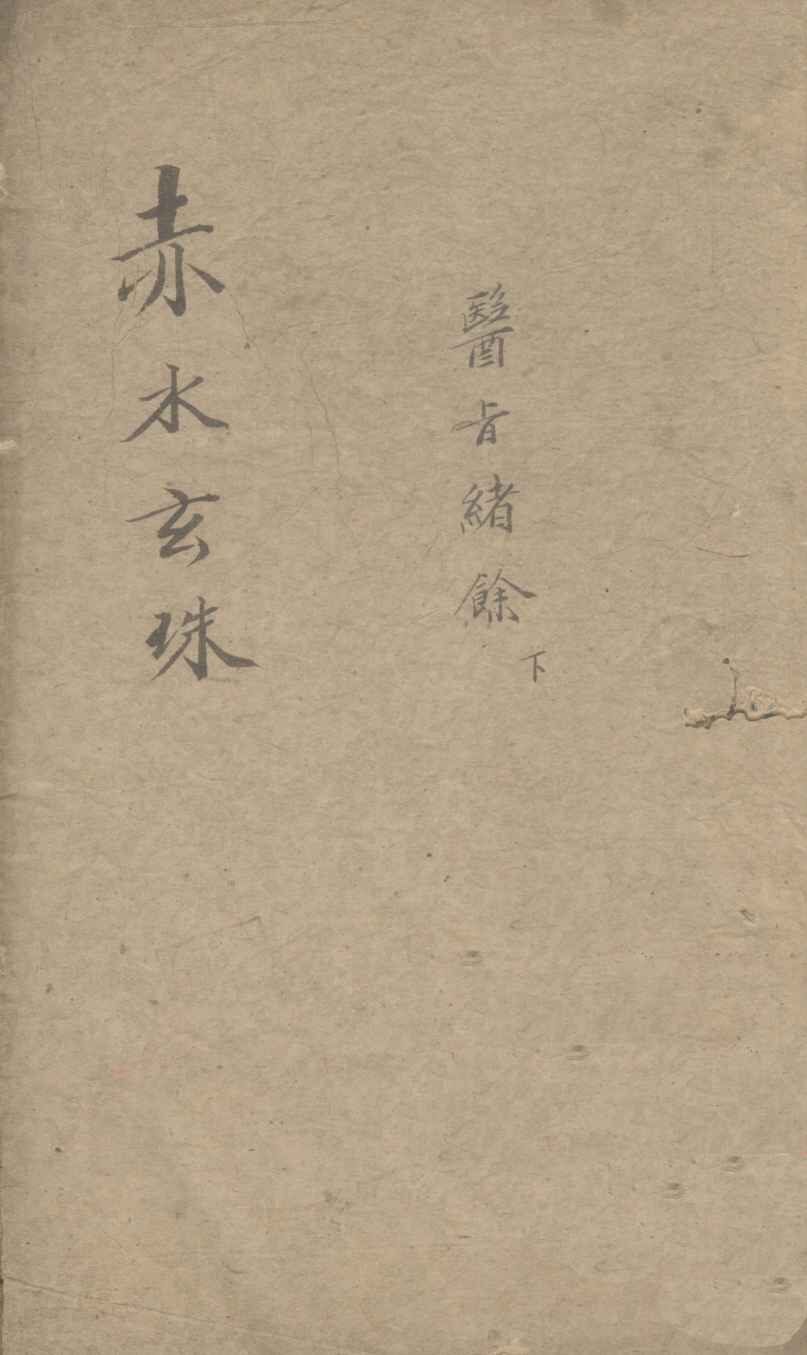 醫旨緒餘下
赤水玄珠